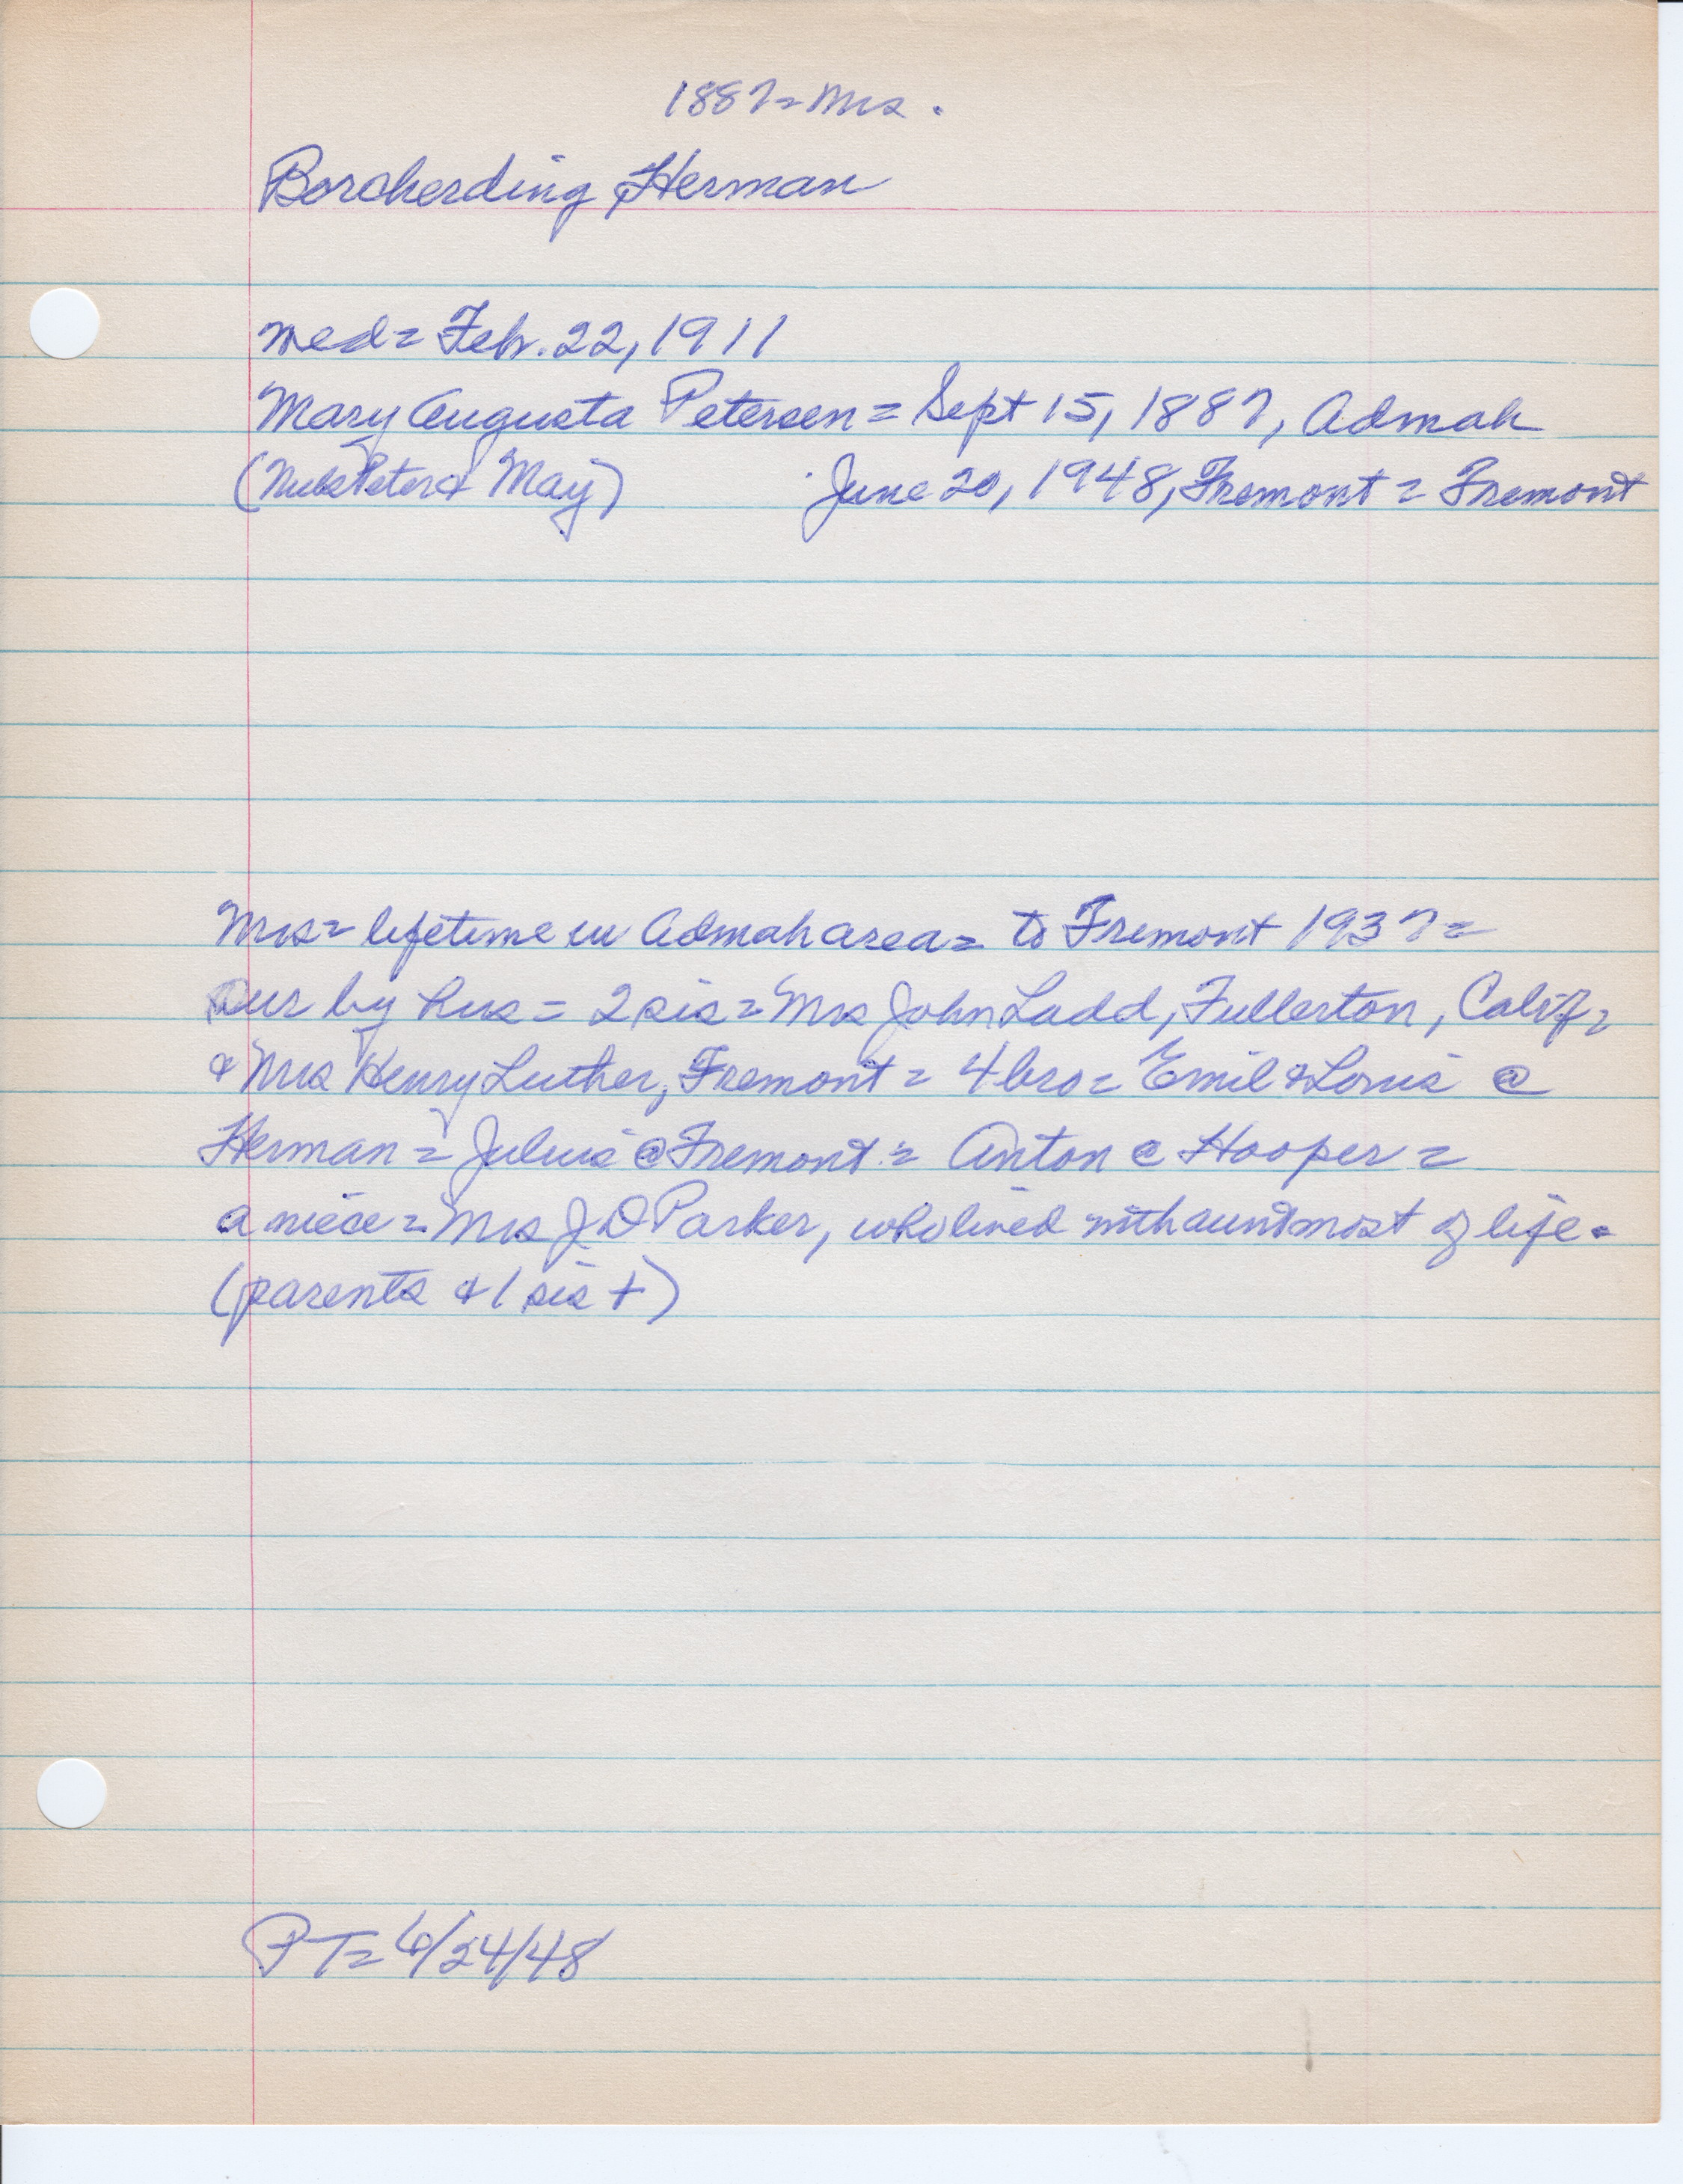 1887= Mrs.
Borcherding Herman
med= Feb. 22, 1911
Mary Augusta Petersen = Sept 15, 1887, Admah
(Peter & May) June 20, 1948, Fremont = Fremont
Mrs= lifetime in Admah area= to Fremont 1937=
Sur by hus = 2 sis = Mrs John Ladd, Fullerton, Calif,
& Mrs Henry Luther, Fremont = 4 bro= Emil & Louis @
Herman = Julius @ Fremont = Anton @ Hooper =
a niece = Mrs J D Parker, who lived with aunt most of life.
(parents & 1 sis +)
PT= 6/24/48